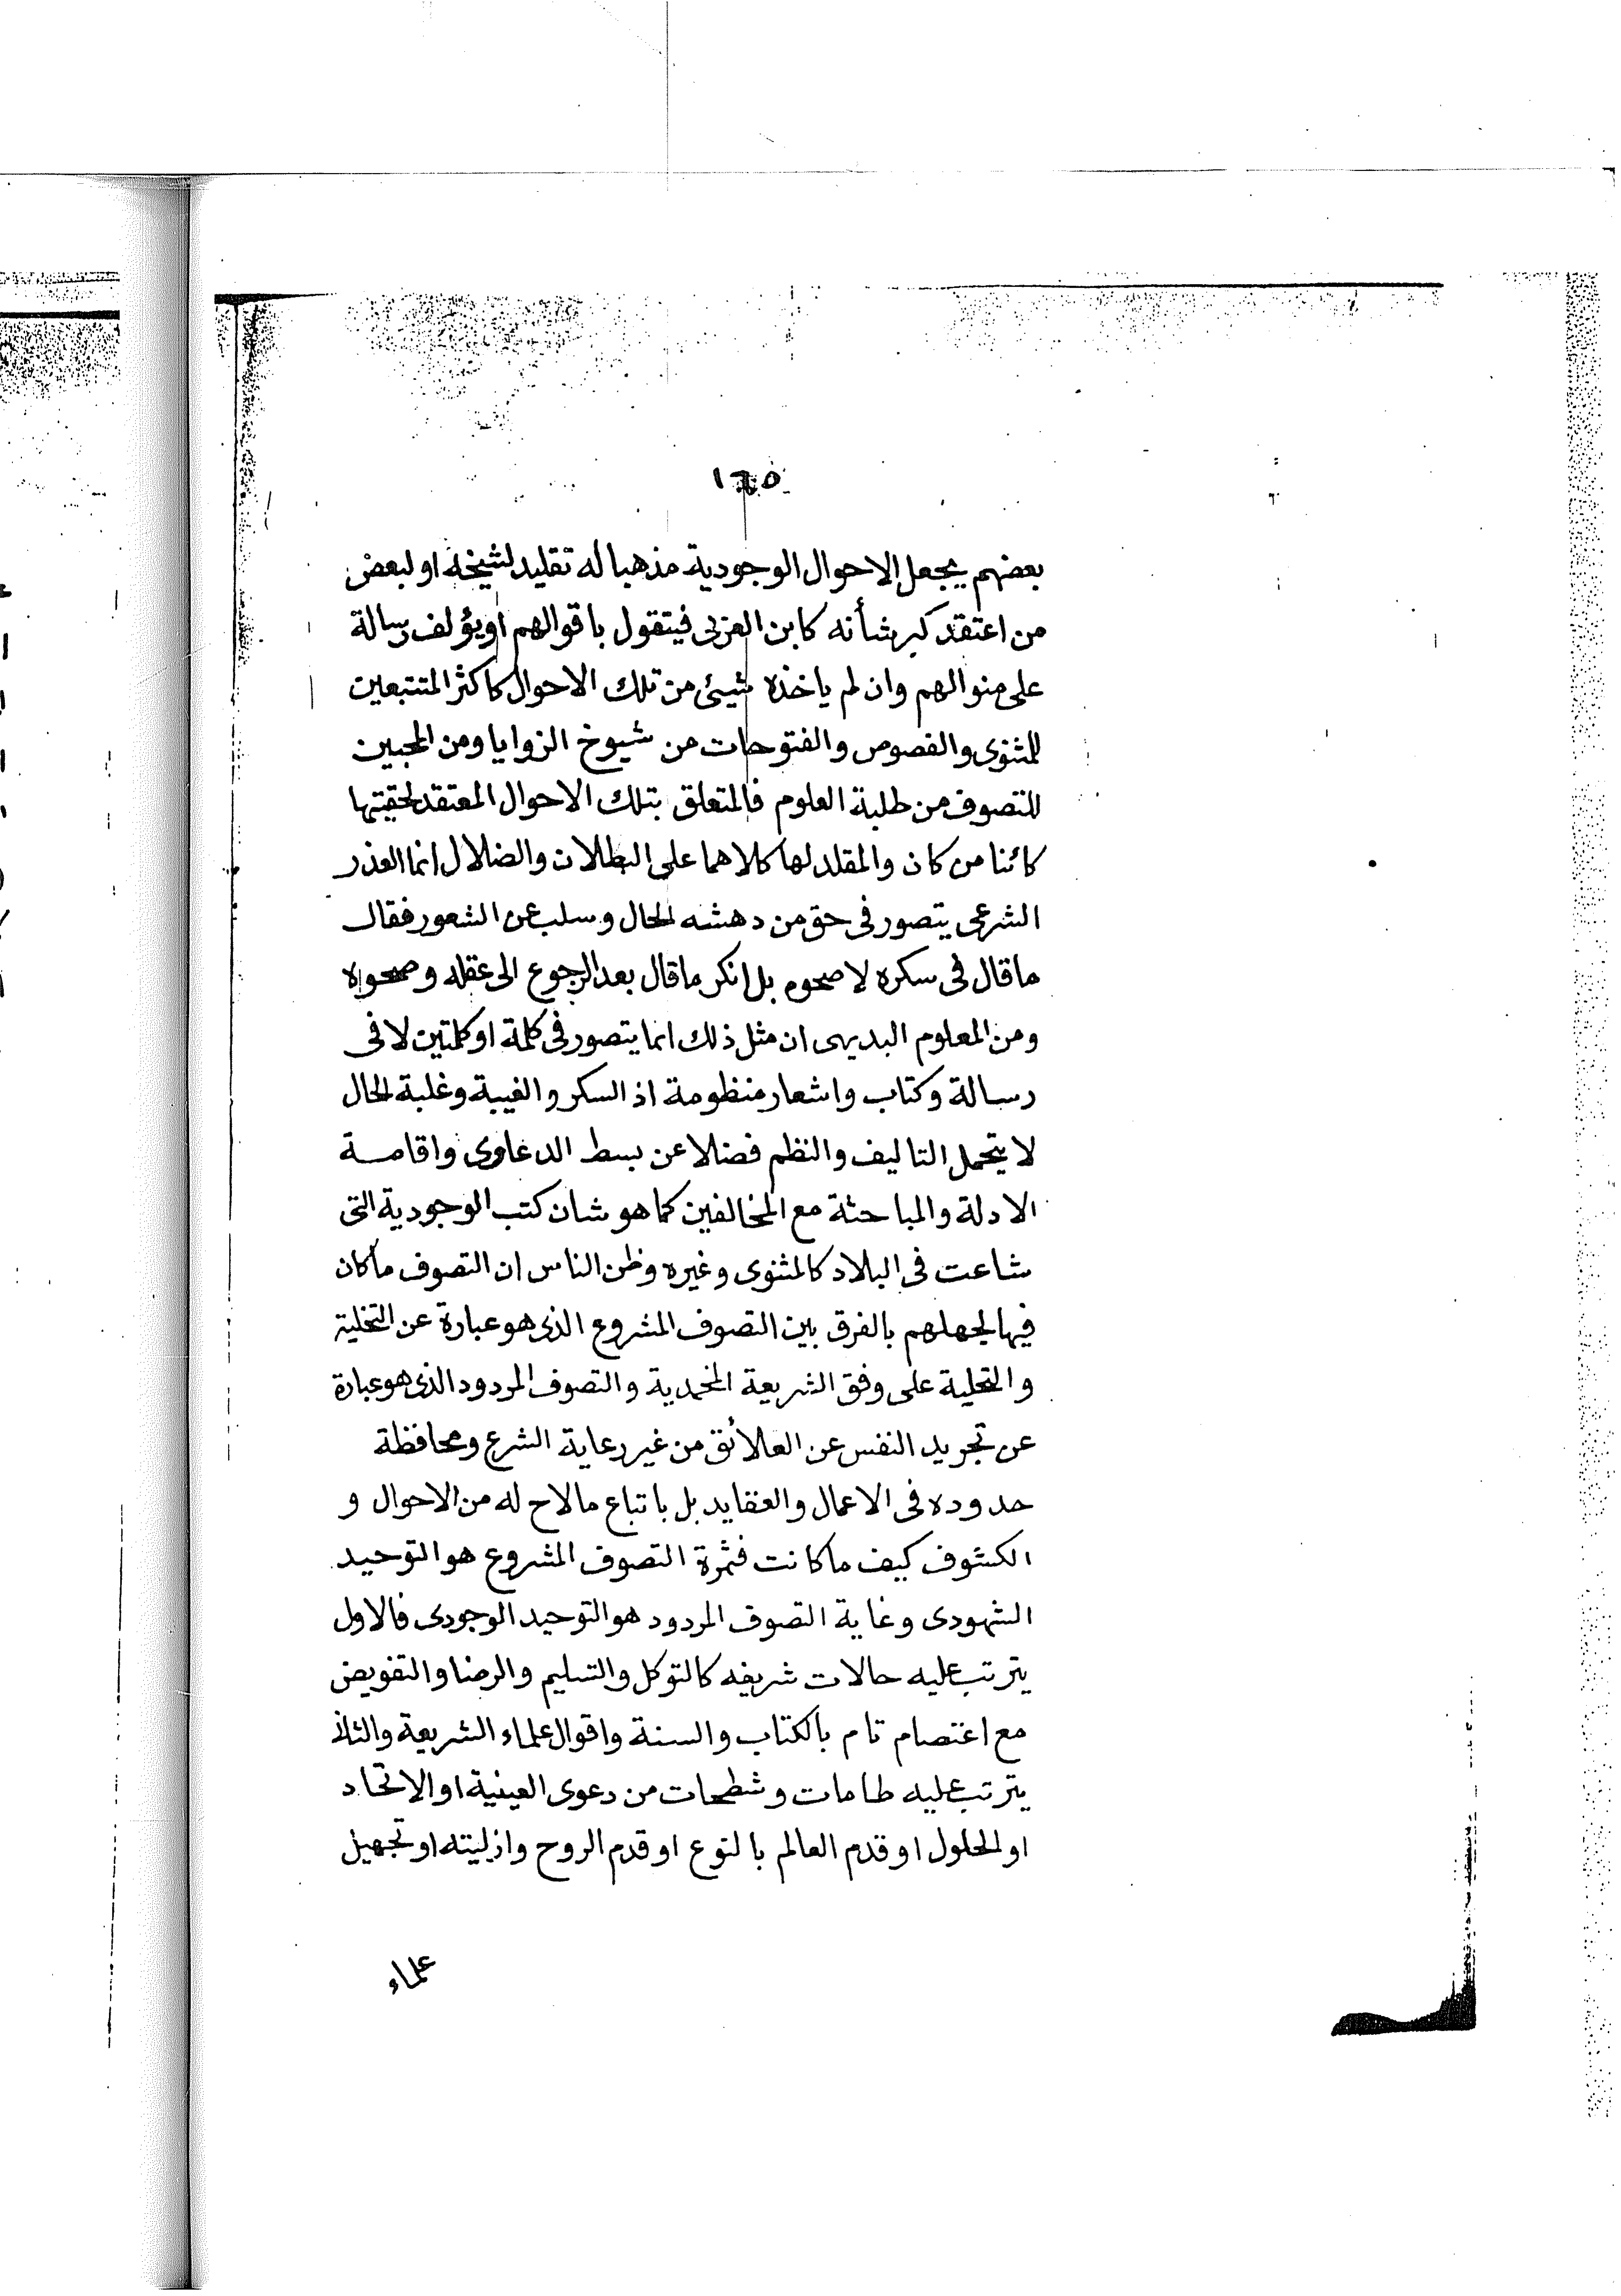 ١٦٥
بعضهم يجعل الاحوال الوجودية مذهبا له تقليد لشيخه او لبعض
من اعتقد كبر شأنه كابن العربى فيتقول باقوالهم او يؤلف رسالة
على منوالهم وان لم ياخذه شيئ من تلك الاحوال كاكثر المتتبعين
للمثنوى والفصوص والفتوحات من شيوخ الزوايا ومن المحبين
للتصوف من طلبة العلوم فالمتعلق بتلك الاحوال المعتقد لحقيتها
كائنا من كان والمقلد لها كلاهما على البطلان والضلال انما العذر
الشرعى يتصور فى حق من دهشه الحال وسلب عن الشعور فقال
ما قال فى سكره لا صحوه بل انكر ما قال بعد الرجوع الى عقله وصحوه
ومن المعلوم البديهى ان مثل ذلك انما يتصور فى كلمة او كلمتين لا فى
رسالة وكتاب واشعار منظومة اذ السكر والغيبة وغلبة الحال
لا يتحمل التاليف والنظم فضلا عن بسط الدعاوى واقامة
الادلة والمباحثة مع المخالفين كما هو شان كتب الوجودية التى
شاعت فى البلاد كالمثنوى وغيره وظن الناس ان التصوف ما كان
فيها لجهلهم بالفرق بين التصوف المشروع الذى هو عبارة عن التخلية
والتحلية على وفق الشريعة المحمدية والتصوف المردود الذى هو عبارة
عن تجريد النفس عن العلائق من غير رعاية الشرع ومحافظة
حدوده فى الاعمال والعقايد بل باتباع ما لاح له من الاحوال و
الكشوف كيف ما كانت فثمرة التصوف المشروع هو التوحيد
الشهودى وغاية التصوف المردود هو التوحيد الوجودى فالاول
يترتب عليه حالات شريفه كالتوكل والتسليم والرضا والتفويض
مع اعتصام تام بالكتاب والسنة واقوال علماء الشريعة والثانى
يترتب عليه طامات وشطحات من دعوى العينية او الاتحاد
او الحلول او قدم العالم بالنوع او قدم الروح وازليته او تجهيل
علماء